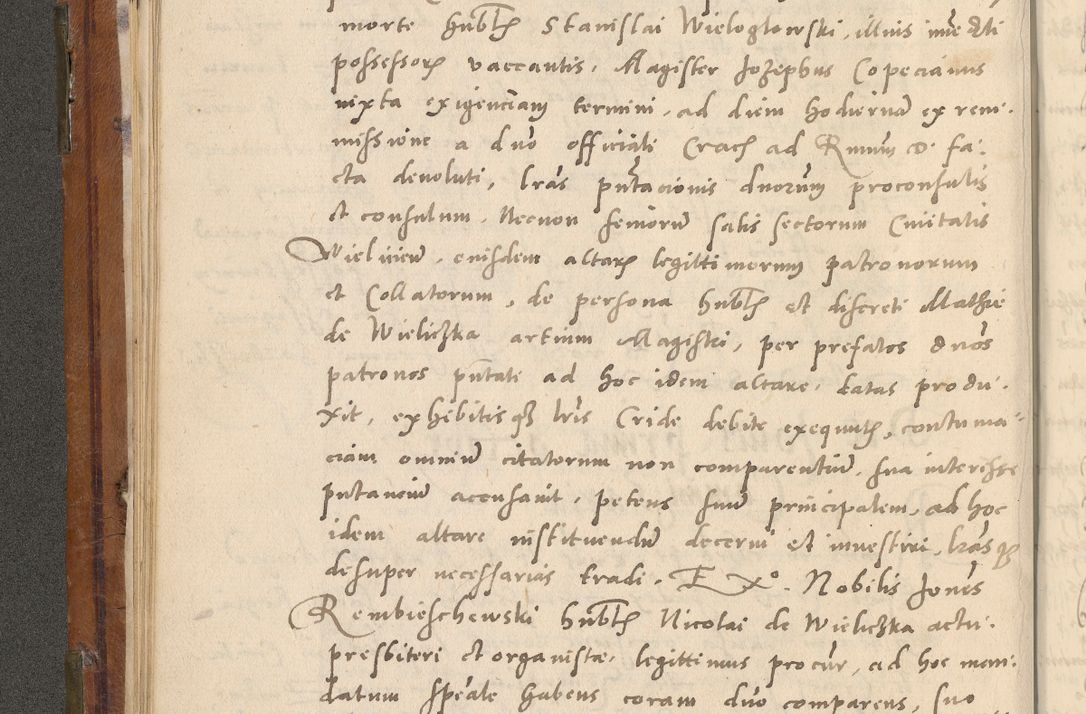 morte hnblis Stanislai Wieloglowski, illius immediati
possessoris vaccantis. Magister Jozephus Copecianus
iuxta exigenciam termini, ad diem hodiernam ex rem-
missione a dno officiali Crac ad Rmum D. fa-
cta devoluti, lras pntacionis dnorum proconsulis
et consulum, Necnon seniorum salis sectorum Civitatis
Wieliciensis, eiusdem altaris legittimorum patronorum
et Collatorum, de persona hnblis et discreti Mathie
de Wieliczka artium Magistri, per prefatos dnos
patronos pntati ad hoc idem altare datas produ-
xit, exhibitisq lris Cride debite exequutis, contuma-
ciam omnium citatorum non comparentium, sua interesse
putancium accusavit, petens suum principalem, ad hoc
idem altare instituendum decerni et investiri, lrasq
desuper necessarias tradi. Ex o. Nobilis Jones
Rembieschewski hnblis Nicolai de Wieliczka actu-
presbiteri et organiste, legittimus procur, ad hoc man-
datum speale habens coram dno comparens, suo